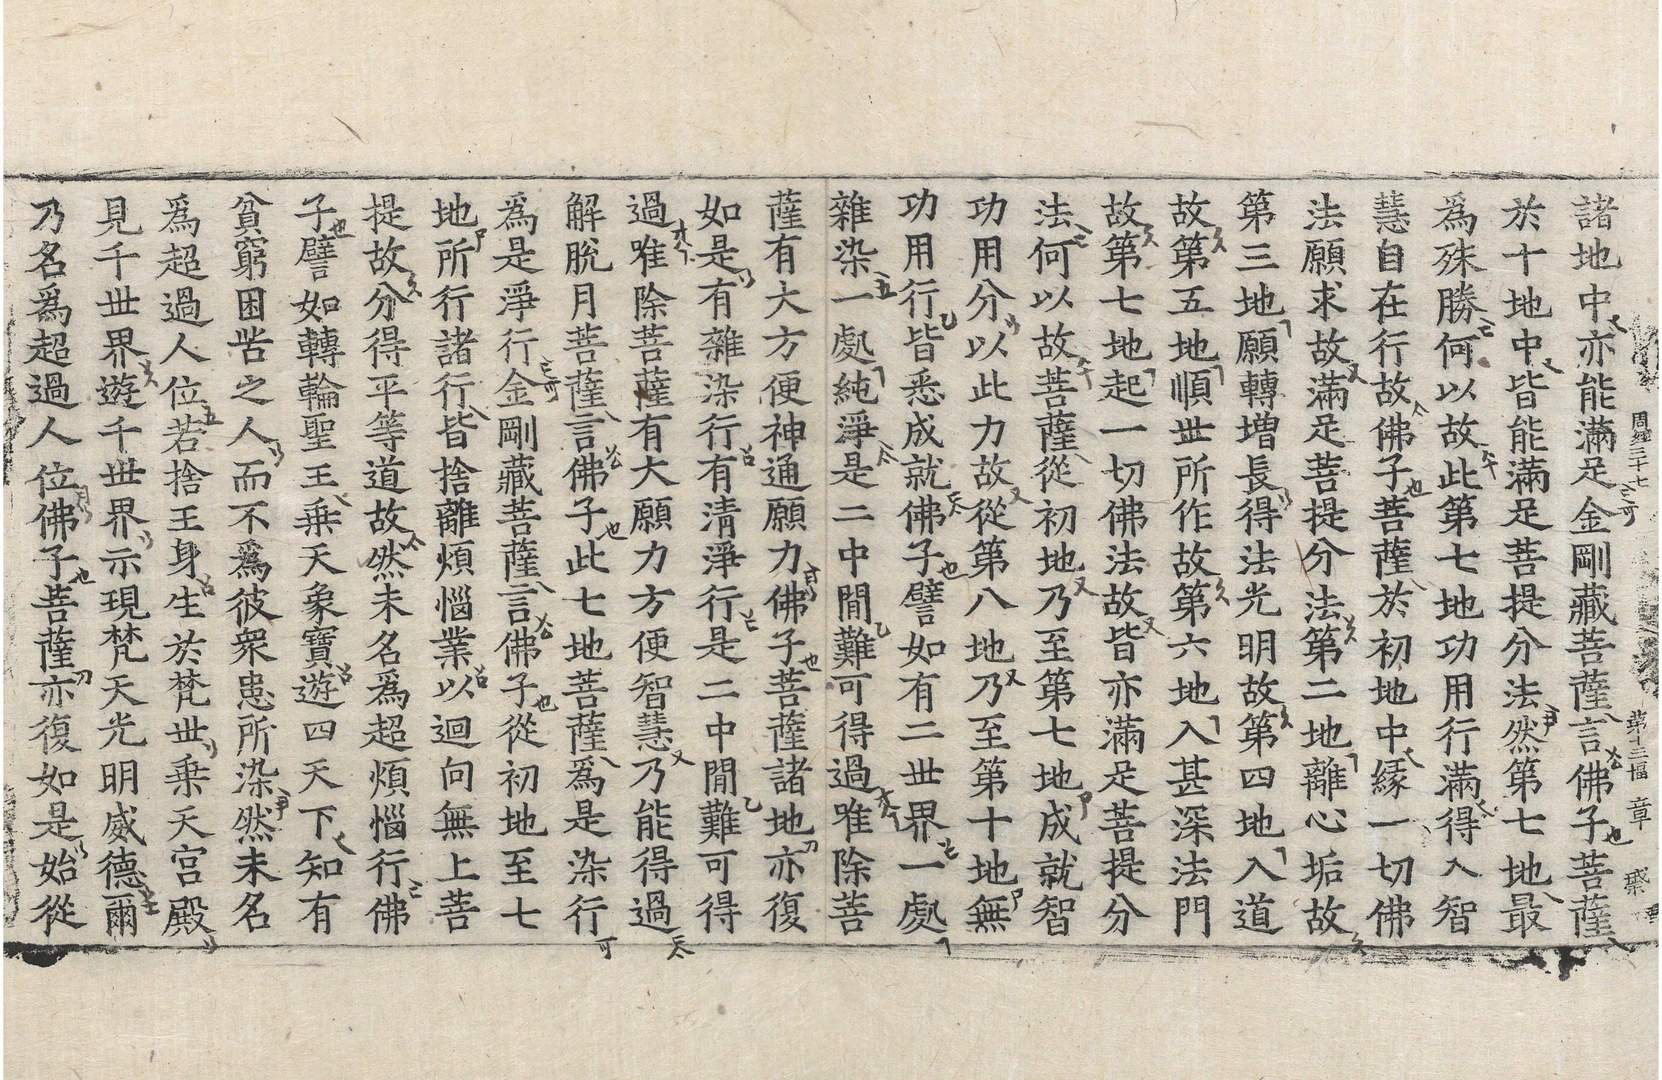 周經三十七　第十三幅　章
諸地中亦能滿足金剛藏菩薩言佛子菩薩
於十地中皆能滿足菩提分法然第七地最
爲殊勝何以故此第七地功用行滿得入智
慧自在行故佛子菩薩於初地中緣一切佛
法願求故滿足菩提分法第二地離心垢故
第三地願轉增長得法光明故第四地入道
故第五地順世所作故第六地入甚深法門
故第七地起一切佛法故皆亦滿足菩提分
法何以故菩薩從初地乃至第七地成就智
功用分以此力故從第八地乃至第十地無
功用行皆悉成就佛子譬如有二世界一處
雜染一處純淨是二中間難可得過唯除菩
薩有大方便神通願力佛子菩薩諸地亦復
如是有雜染行有清淨行是二中間難可得
過唯除菩薩有大願力方便智慧乃能得過
解脫月菩薩言佛子此七地菩薩爲是染行
爲是淨行金剛藏菩薩言佛子從初地至七
地所行諸行皆捨離煩惱業以迴向無上菩
提故分得平等道故然未名爲超煩惱行佛
子譬如轉輪聖王乘天象寶遊四天下知有
貧窮困苦之人而不爲彼衆患所染然未名
爲超過人位若捨王身生於梵世乘天宮殿
見千世界遊千世界示現梵天光明威德爾
乃名爲超過人位佛子菩薩亦復如是始從